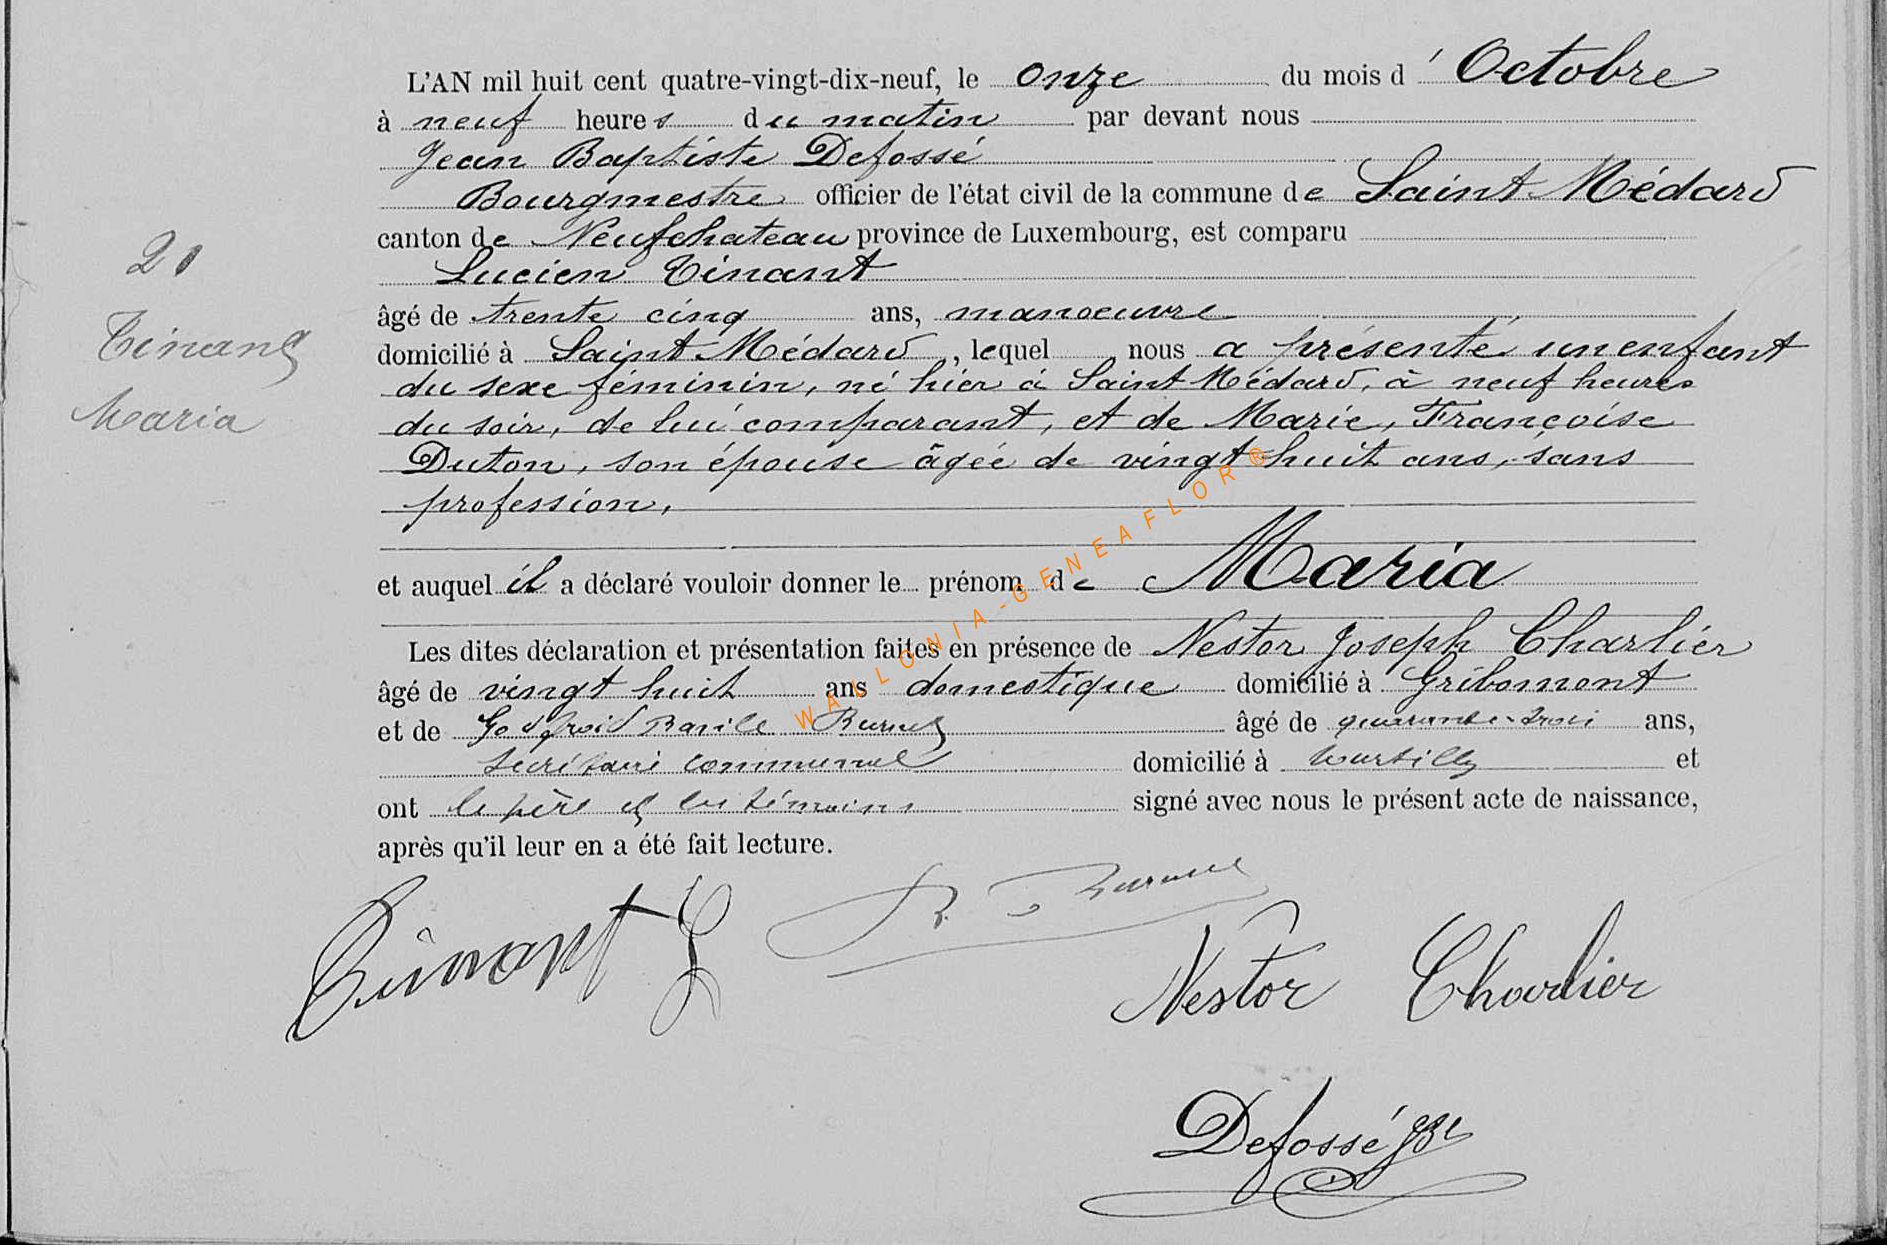 L'AN mil huit cent quatre-vingt-dix-neuf, le onze du mois d'Octobre
à neuf heures du matin par devant nous
Jean Baptiste Defossé
Bourgmestre officier de l'état civil de la commune de Saint Médard
canton de Neufchateau province de Luxembourg, est comparu
Lucien Tinant
âgé de trente cinq ans, manoeuvre
domicilié à Saint Médard, lequel nous a présenté un enfant
du sexe féminin, né hier à Saint Médard, à neuf heures
du soir, de lui comparant, et de Marie, Françoise
Duton, son épouse âgée de vingt huit ans, sans
profession,
et auquel il a déclaré vouloir donner le prénom de Maria
Les dites déclaration et présentation faites en présence de Nestor Joseph Charlier
âgé de vingt huit ans domestique domicilié à Gribomont
et de Godfroid Basile âgé de quarante-trois ans,
secrétaire communal domicilié à et
ont le père et les témoins signé avec nous le présent acte de naissance,
après qu'il leur en a été fait lecture.
20
Tinant
Maria
WALLONIA-GENEAFLOR®
Tinant L
Nestor Charlier
Defossé JB